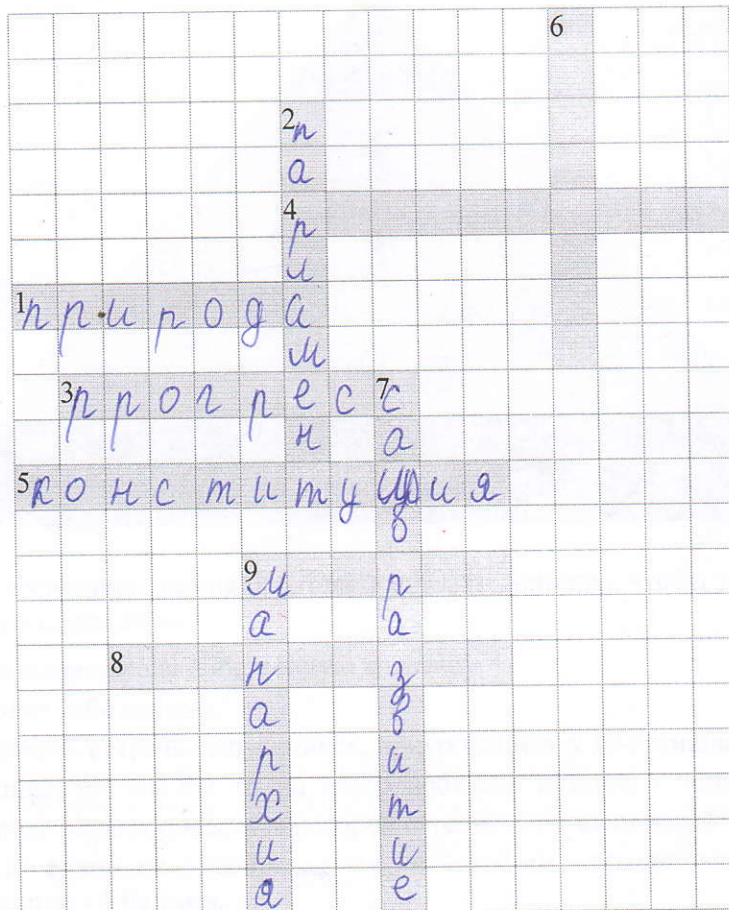 6
2 парламент
4
1 природа
3 прогресс
7 саморазвитие
5 конституция
9 манархия
8